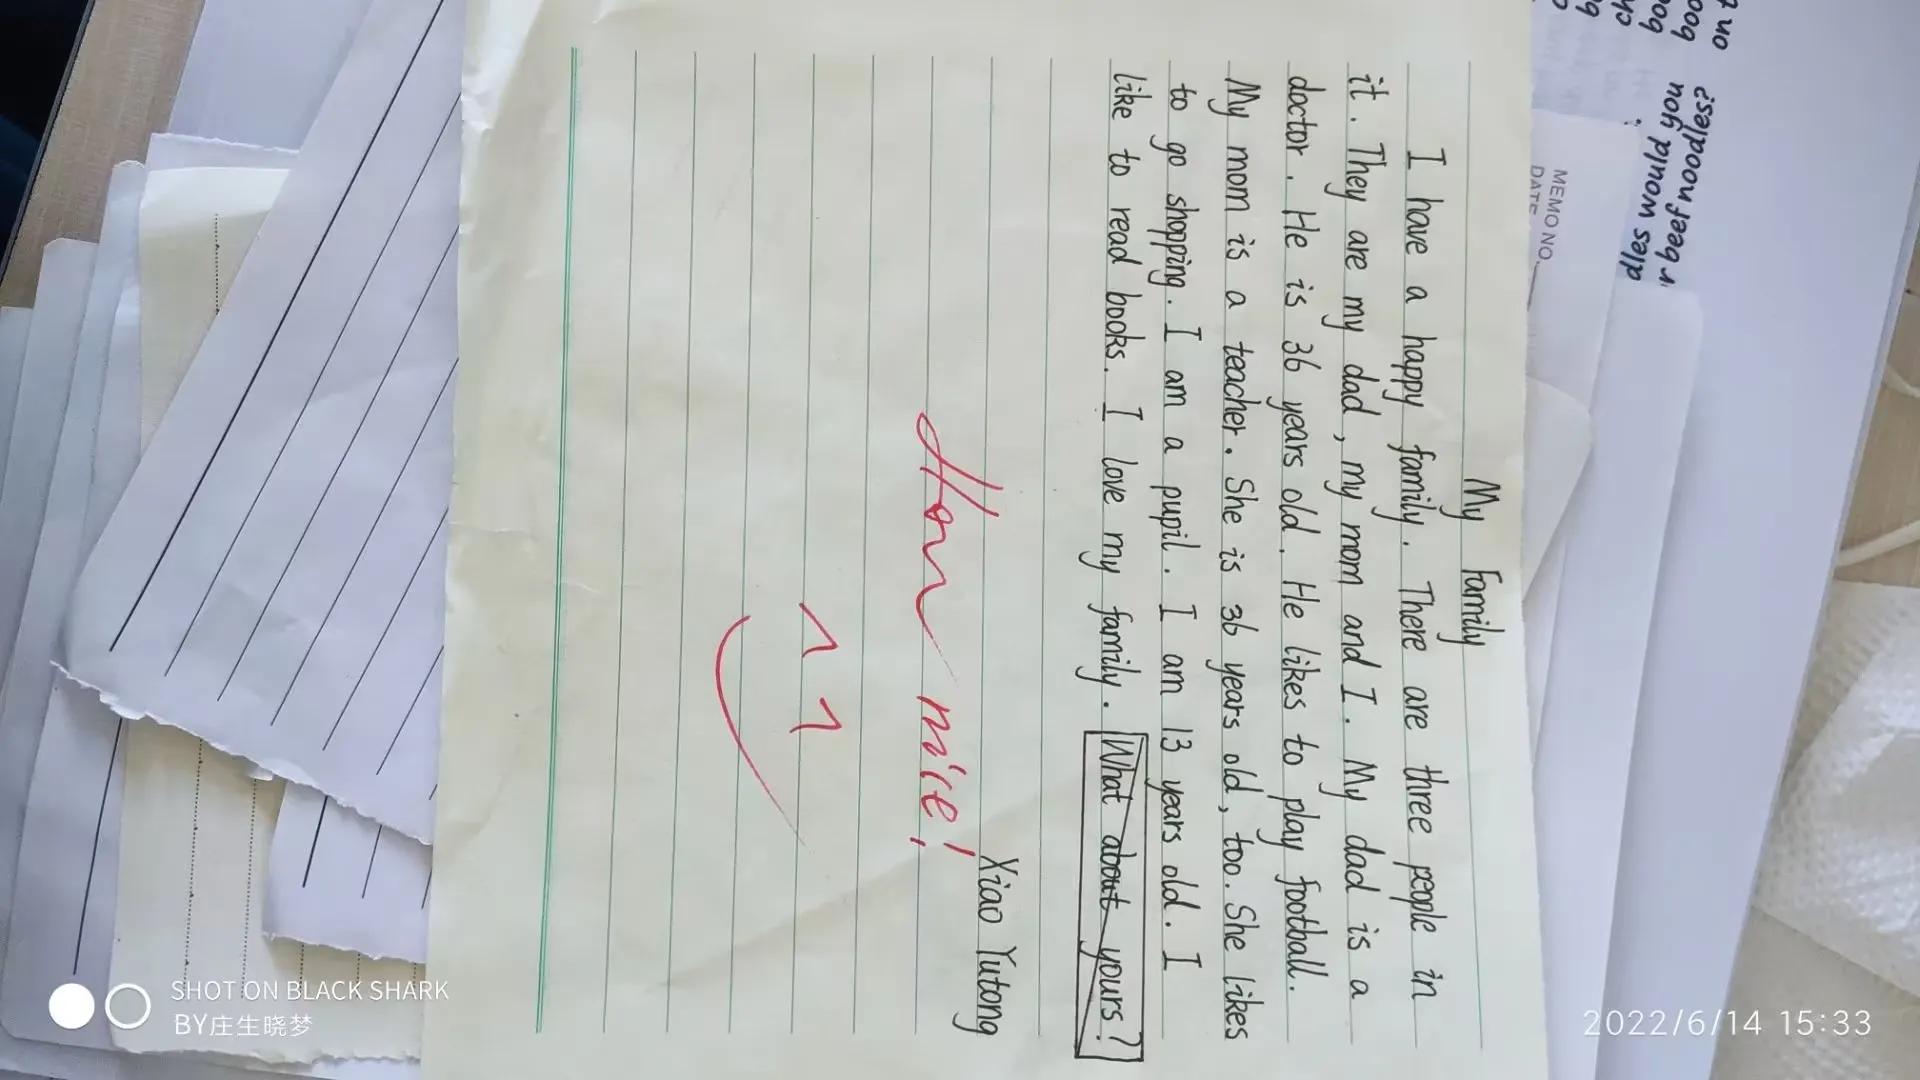 My Family
I have a happy family. There are three people in
it. They are my dad, my mom and I. My dad is a
doctor. He is 36 years old. He likes to play football.
My mom is a teacher. She is 36 years old, too. She likes
to go shopping. I am a pupil. I am 13 years old. I
like to read books. I love my family. What about yours?
Xiao Yutong
How nice!
MEMO NO.
DATE
dles would you
r beef noodles?
on t
boo
boo
ch
SHOT ON BLACK SHARK
BY庄生晓梦
2022/6/14 15:33